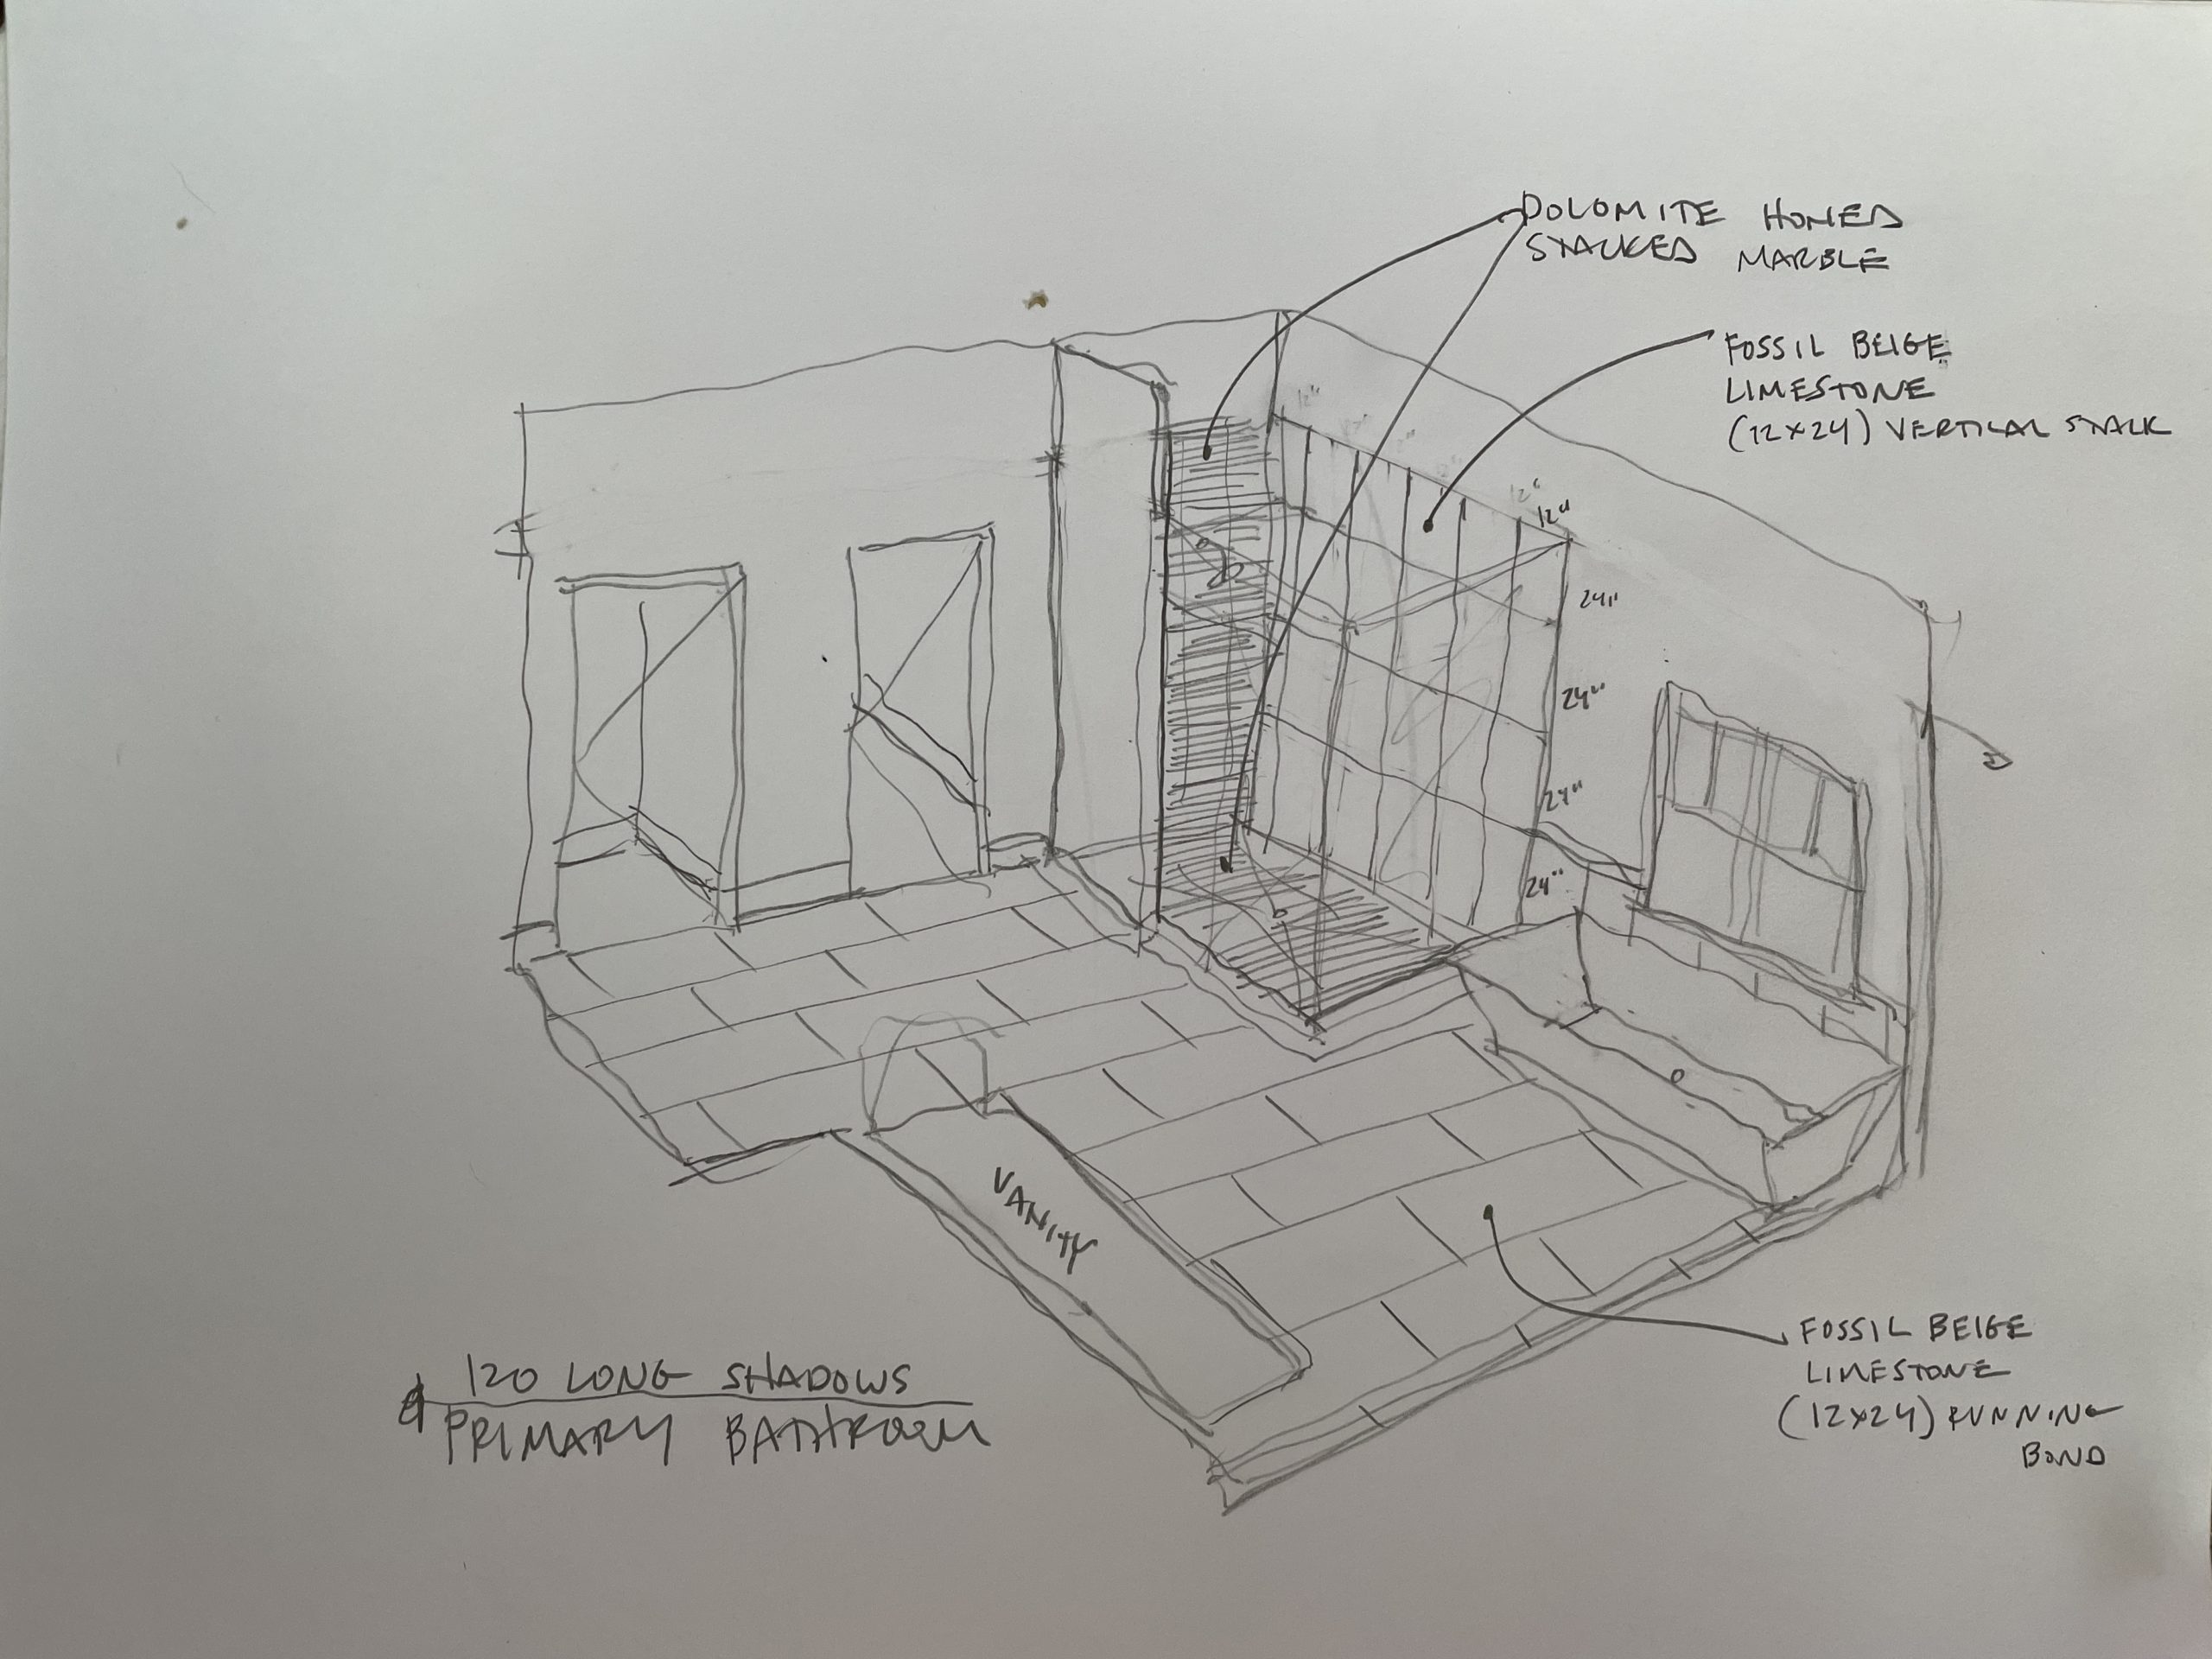 DOLOMITE HONED
STACKED MARBLE
FOSSIL BEIGE
LIMESTONE
(12x24) VERTICAL STACK
12"
12"
12"
24"
24"
24"
24"
VANITY
FOSSIL BEIGE
LIMESTONE
(12x24) RUNNING
BOND
120 LONG SHADOWS
PRIMARY BATHROOM